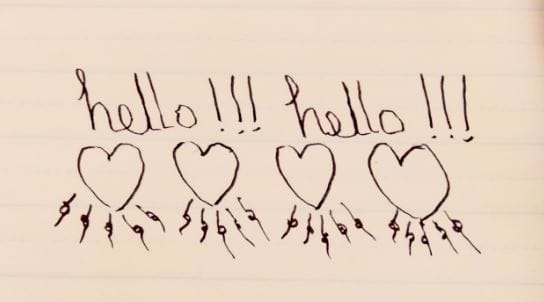 hello!!! hello!!!